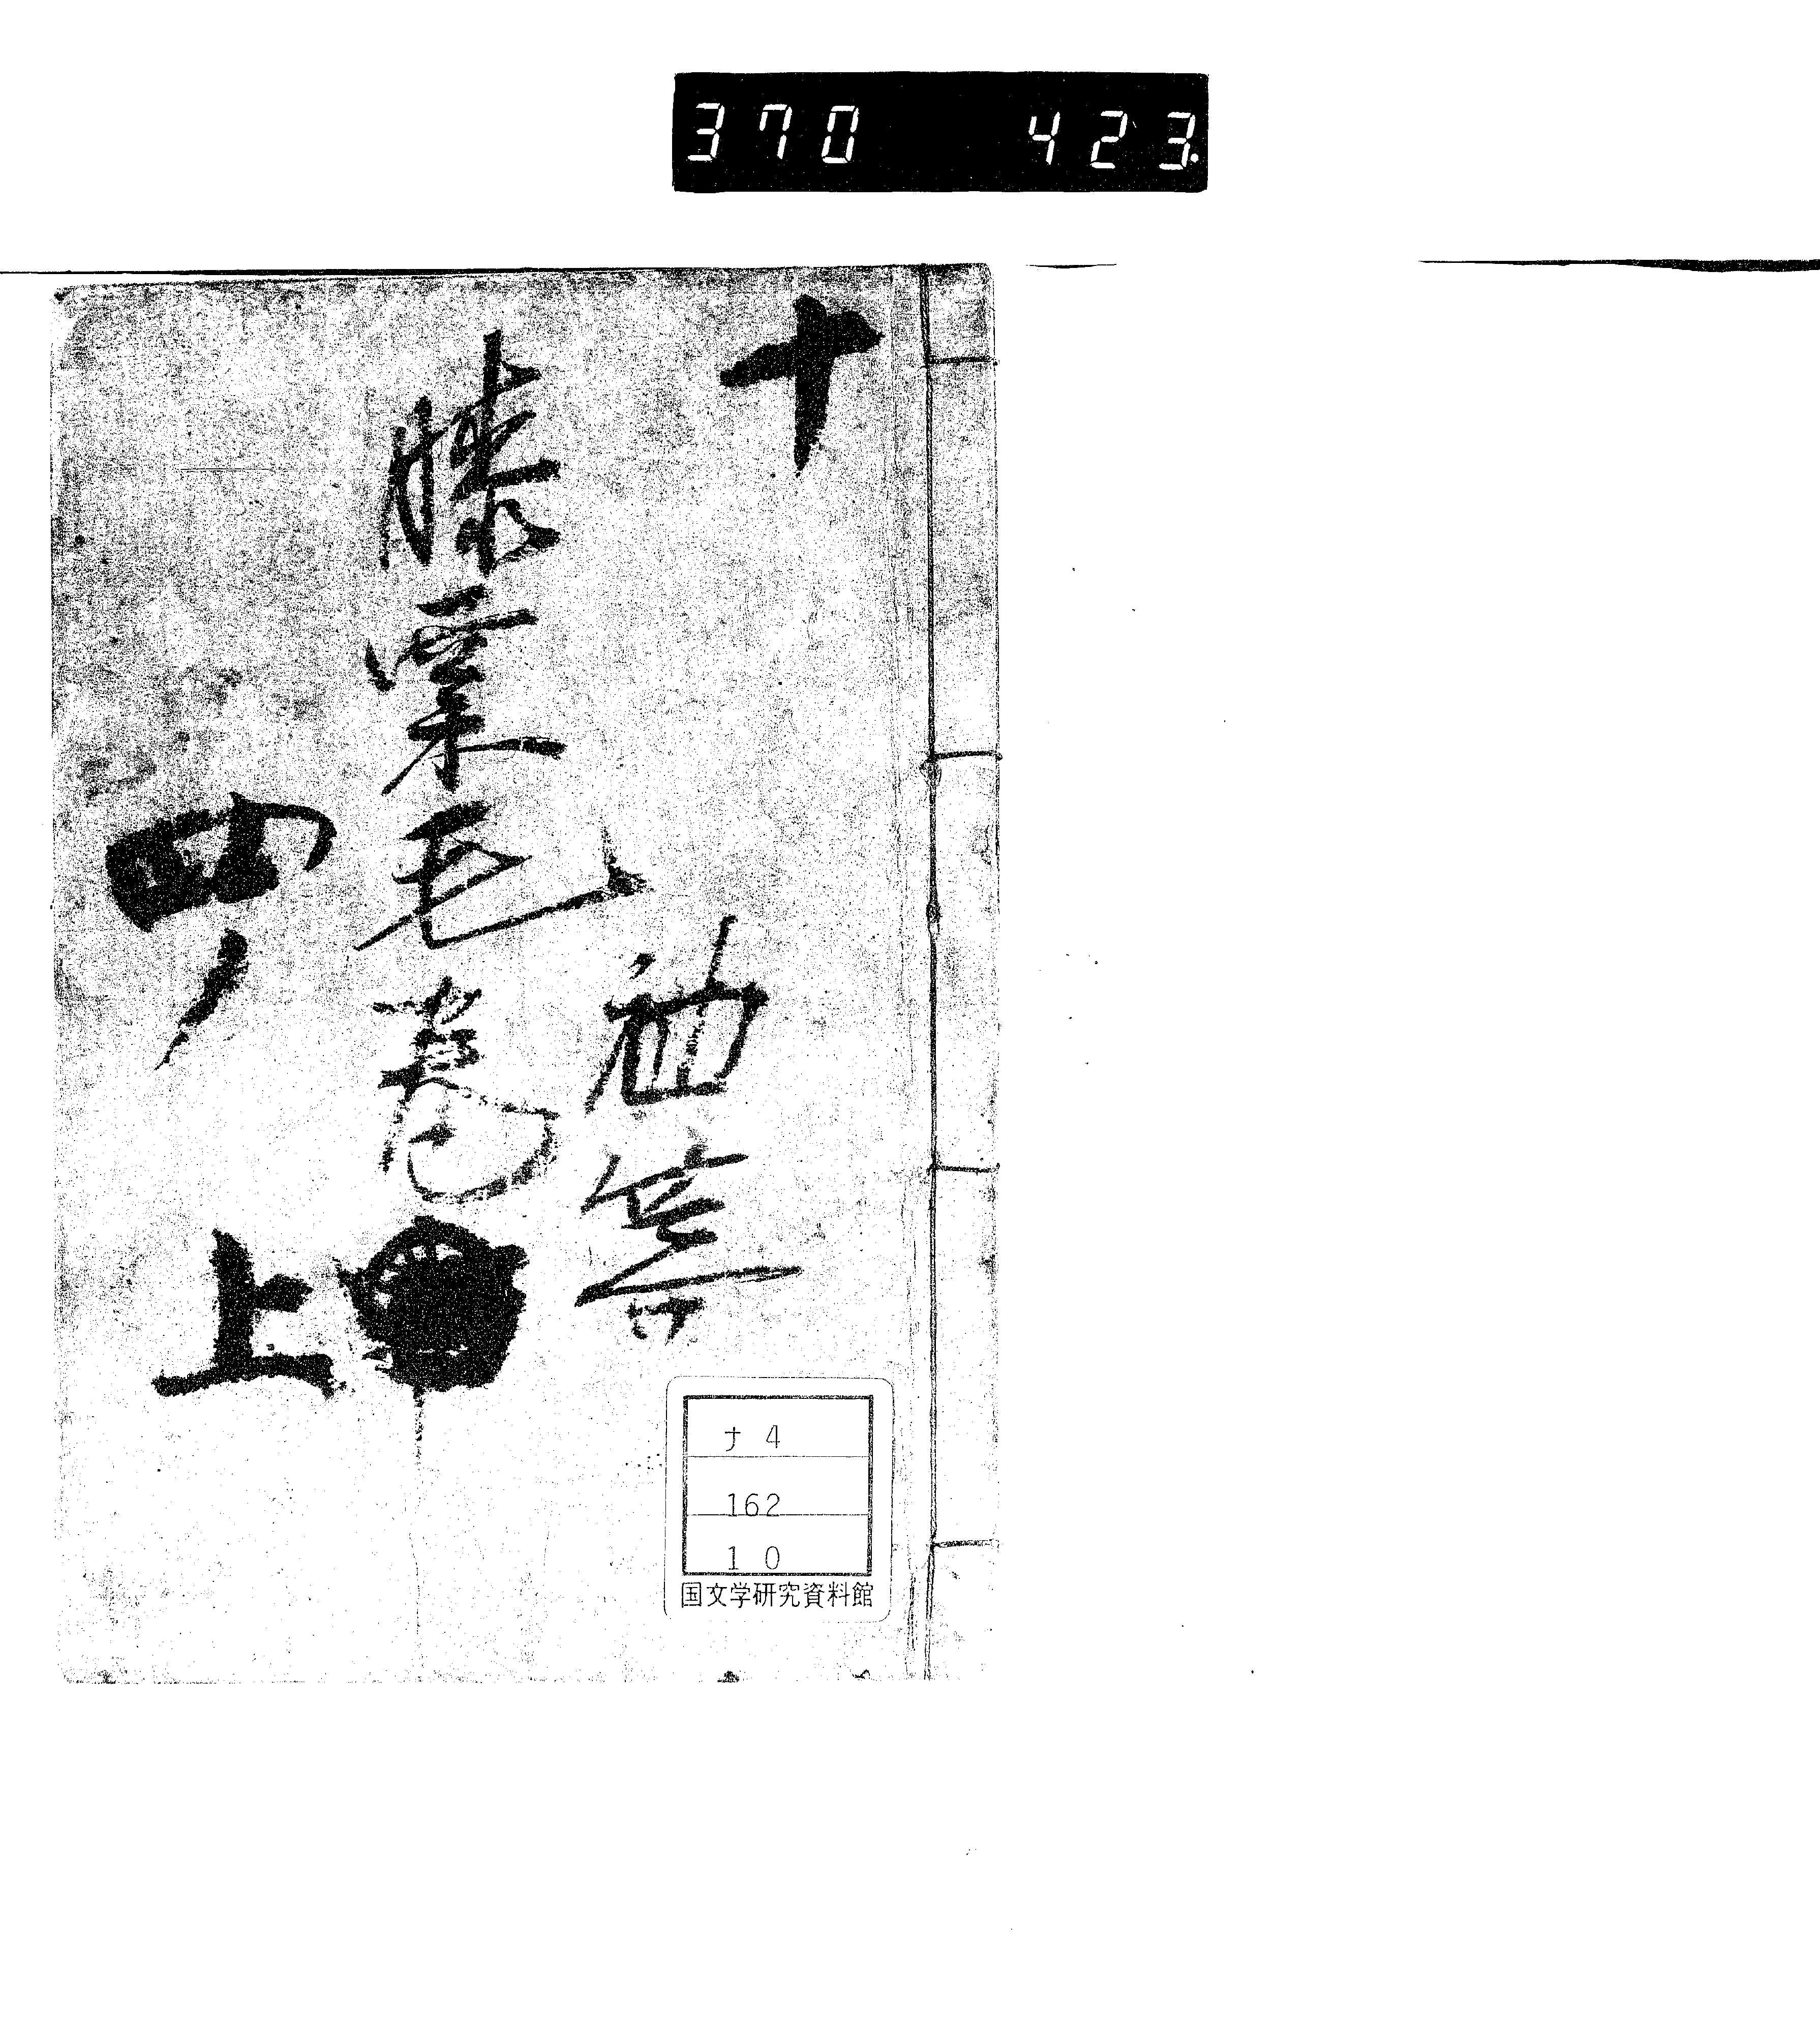 370 423.
十
膝栗毛巻
四ノ
上
ナ 4
162
1 0
国文学研究資料館